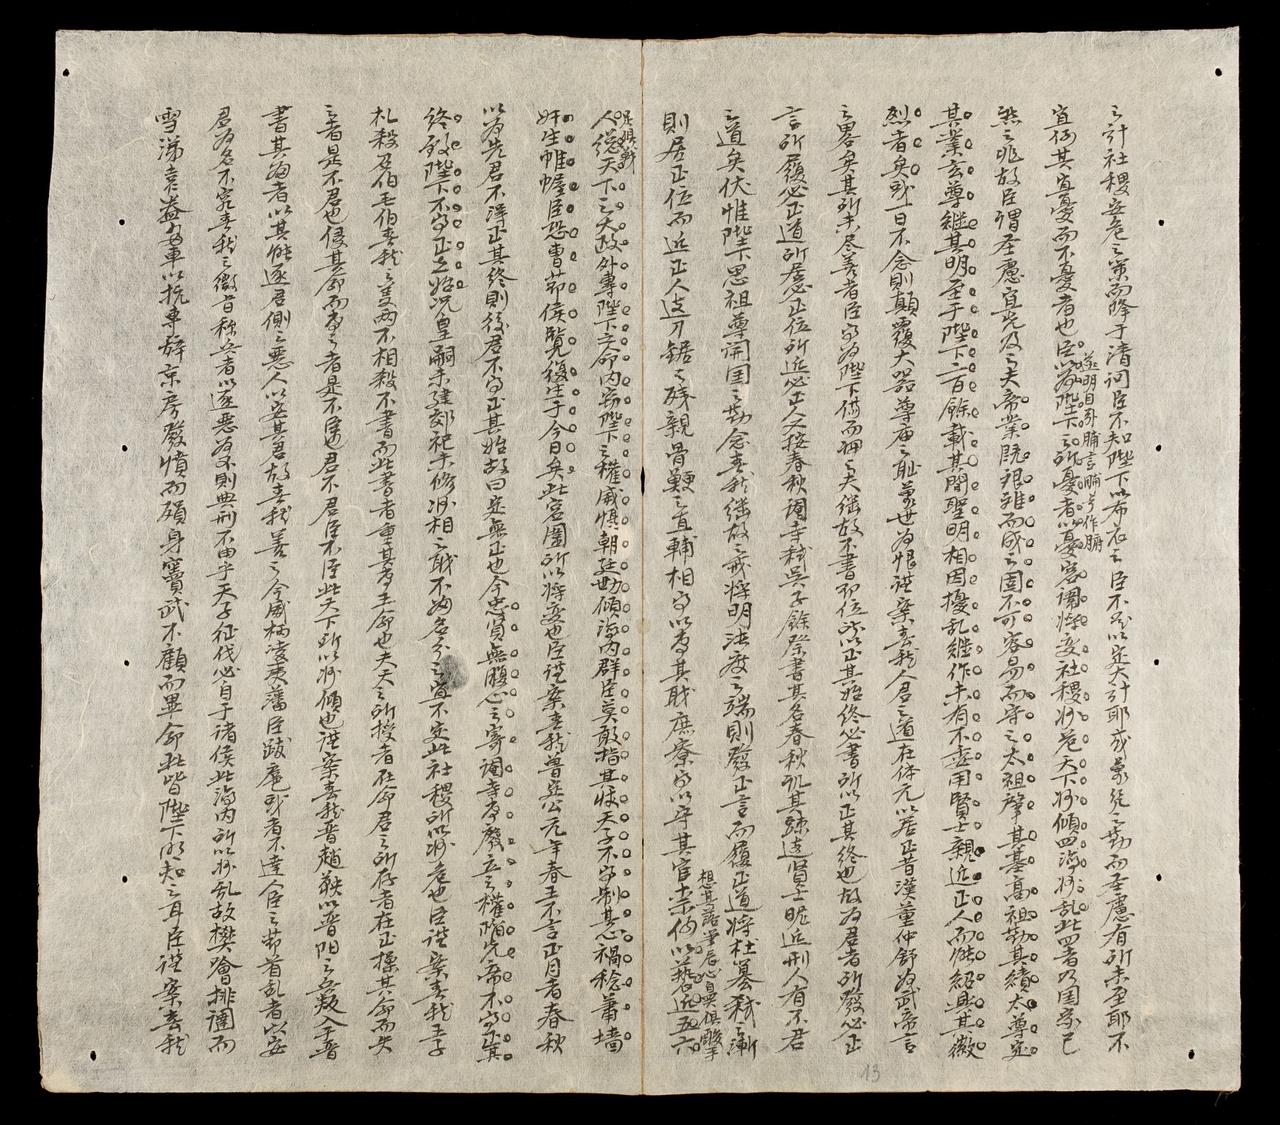 之計社稷安危之策而降于清問臣不知陛下以布衣之臣不足以定大計耶或萬幾之勤而圣慮有所未至耶不
宜何其宜憂而不憂者也臣以为陛下之所憂者以憂宮闈將变社稷將危天下將傾四海將乱此四者乃国家已
然之兆故臣謂圣慮宜先及之夫帝業既艰难而成之固不可容易而守之太祖肇其基高祖勤其績太尊定
其業玄尊継其明至于陛下二百餘載其間聖明相因擾乱継作未有不委用賢士親近正人而能紹興其徽
烈者矣或一日不念則顛覆大器尊庙之恥萬世为恨謹案春秋人君之道在体元以居正昔漢董仲舒为武帝言
之畧矣其所未尽善者臣得为陛下備而陳之夫継故不書即位所以正其始終必書所以正其終也故为君者所發必正
言所履必正道所居必正位所近必正人又按春秋閽寺弑吳子餘祭書其名春秋譏其疎遠賢士昵近刑人有不君
之道矣伏惟陛下思祖尊開国之勤念春秋継故之戒將明法度之端則發正言而履正道將杜篡弑之漸
則居正位而近正人遠刀鋸之残親骨鯁之直輔相得以專其職庶寮得以守其官柰何以褻近五六
想其落筆辰心與俱酸辛
人總天下之大政外專陛下之命內竊陛下之權威慑朝廷勢傾海內群臣莫敢指其狀天子不得制其心禍稔蕭墻
奸生帷幄臣恐曹節侯覽復生于今日矣此宮闈所以將变也臣謹案春秋魯定公元年春王不言正月者春秋
以为先君不得正其終則後君不得正其始故曰定無正也今忠賢無腹心之寄閽寺專廢立之權陷先帝不得正其
終致陛下不得正其始況皇嗣未建郊祀未修將相之職不歸名分之宜不定此社稷所以將危也臣謹案春秋王子
札殺召伯毛伯春秋之义两不相殺不書而此書者重其專王命也夫天之所授者在命君之所存者在正操其命而失
之者是不君也侵其命而專之者是不臣也君不君臣不臣此天下所以將傾也謹案春秋晋趙鞅以晋陽之兵叛入于晋
書其歸者以其能逐君側之惡人以安其君故春秋善之今威柄凌夷藩臣跋扈或者不達人臣之節首乱者以安
君为名不究春秋之微旨称兵者以逐惡为义則典刑不由乎天子征伐必自于诸侯此海内所以將乱故樊噲排闥而
雪涕袁盎當車以抗辭京房發憤而殞身竇武不顧而畢命此皆陛下明知之耳臣謹案春秋
13